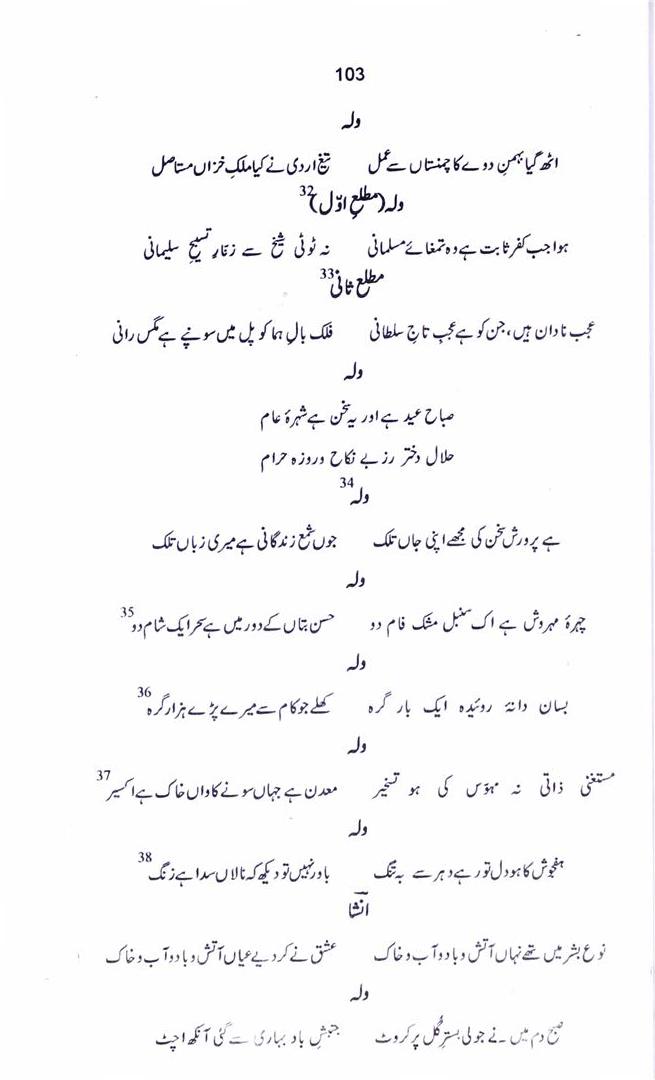 103
ولہ
اٹھ گیا بہمنِ و دے کا چمنستاں سے عمل تیغِ اردی نے کیا ملکِ خزاں مستاصل
ولہ (مطلعِ اوّل)32
ہوا جب کفر ثابت ہے وہ تمغائے مسلمانی نہ ٹوٹی شیخ سے زنّار تسبیحِ سلیمانی
مطلع ثانی33
عجب نادان ہیں، جن کو ہے عجبِ تاجِ سلطانی فلک بالِ ہما کو پل میں سونپے ہے مگس رانی
ولہ
صباح عید ہے اور یہ سخن ہے شہرۂ عام
حلال دختر رز بے نکاح و روزہ حرام
ولہ34
ہے پرورش سخن کی مجھے اپنی جاں تلک جوں شمع زندگانی ہے میری زباں تلک
ولہ
چہرۂ مہروش ہے اک سنبل مشک فام دو حسن بتاں کے دور میں ہے سحر ایک شام دو35
ولہ
بسان دانۂ روئیدہ ایک بار گرہ کھلے جو کام سے میرے پڑے ہزار گرہ36
ولہ
مستغنی ذاتی نہ مہوّس کی ہو تسخیر معدن ہے جہاں سونے کا واں خاک ہے اکسیر37
ولہ
ہفجوش کا ہو دل تو رہے دہر سے بہ تنگ باور نہیں تو دیکھ کہ نالاں سدا ہے زنگ38
انشا
نوع بشر میں تھے نہاں آتش و باد و آب و خاک عشق نے کر دیے عیاں آتش و باد و آب و خاک
ولہ
صبح دم میں نے جو لی بسترِ گُل پر کروٹ جنبشِ باد بہاری سے گئی آنکھ اچٹ